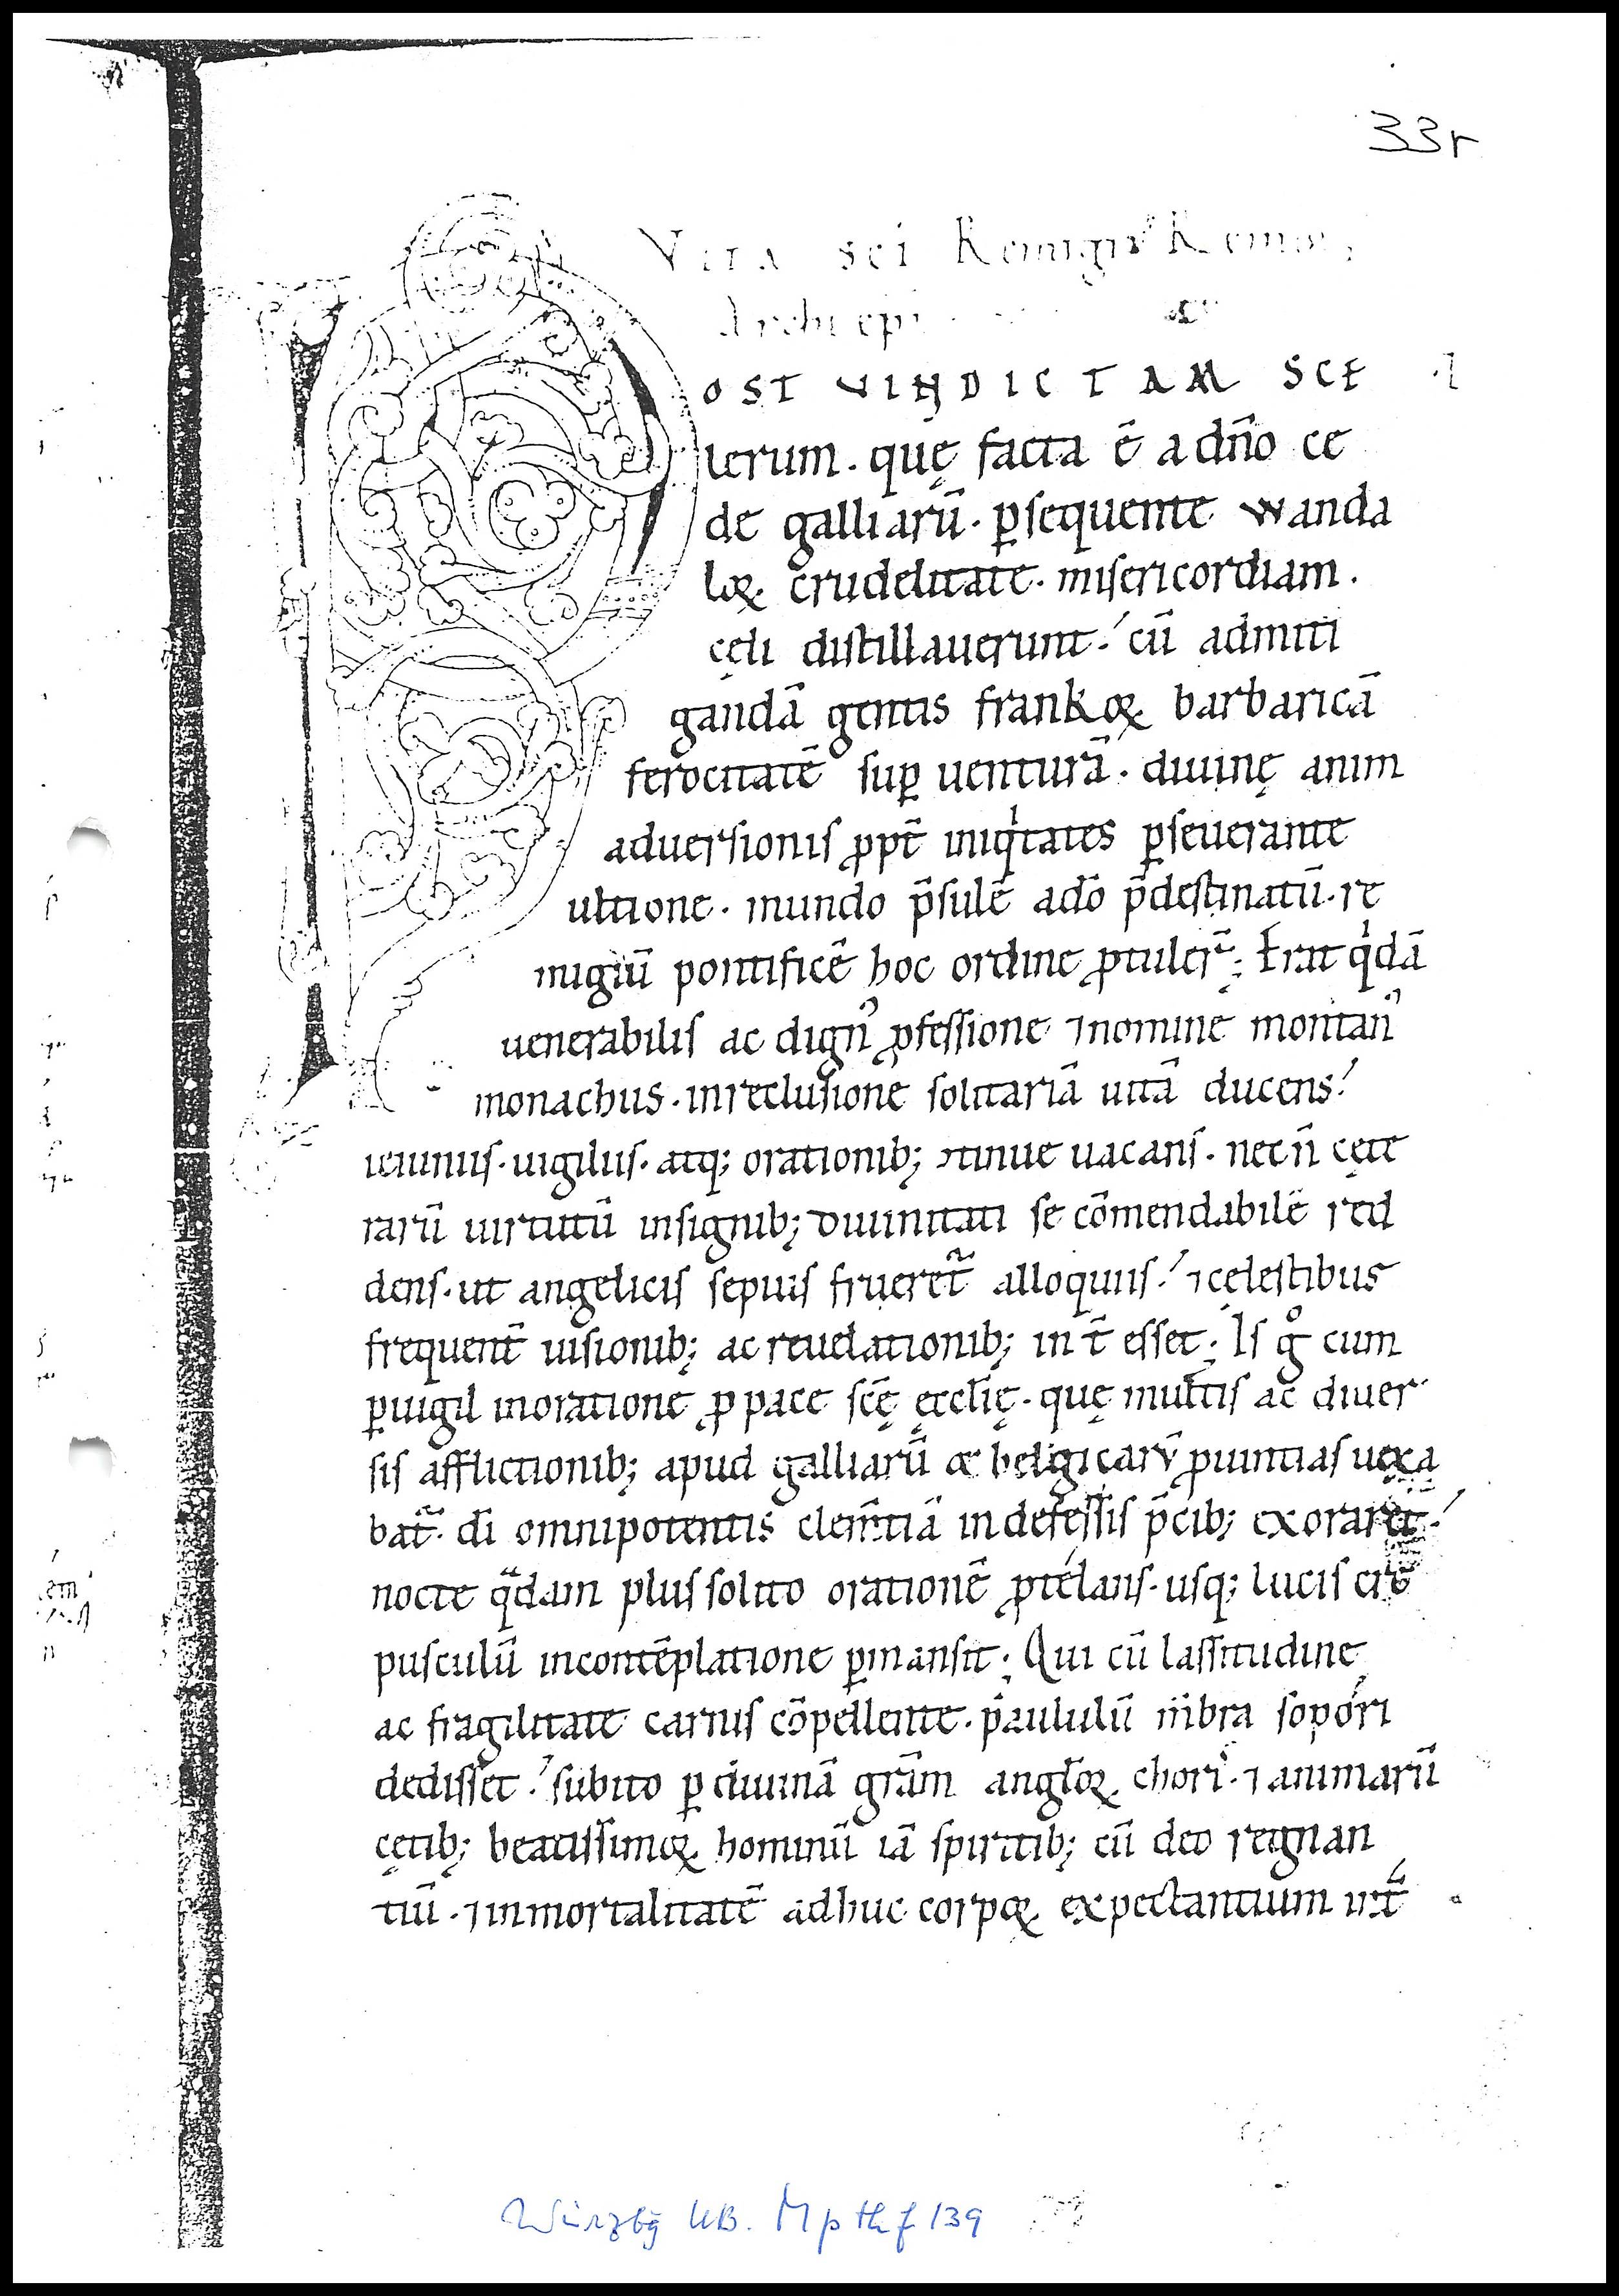 33r
Vita sci Remigii Remen
Archiepi
POST VINDICTAM SCE
lerum · quę facta ē a dño ce
de galliarū · ꝑsequente wanda
loꝝ crudelitate · misericordiam ·
cęli distillauerunt · cū admiti
gandā gentis frankoꝝ barbaricā
ferocitatē suꝑ uenturā · diuinę anim
aduersionis ꝓpt̄ iniqⁱtates ꝑseuerante
ultione · mundo p̄sulē ado͞ p̄destinatū · re
migiū pontificē hoc ordine ꝓtuler̄ ; Erat qⁱdā
uenerabilis ac dignꝰ ꝓfessione ⁊nomine montanꝰ
monachus · inreclusione solitariā uitā ducens ·
ieiuniis · uigiliis · atq; orationib; ↄtinue uacans · nec n̄ cęte
rarū uirtutū insignib; diuinitati se cōmendabilē red
dens · ut angelicis sepuis frueret̄ alloquiis · ⁊cęlestibus
frequent̄ uisionib; ac reuelationib; in t̄ esset ; Is gͦ cum
ꝑuigil inoratione ꝓ pace scę̄ ecclīę · quę multis ac diuer
sis afflictionib; apud galliarū & belgicarū ꝓuintias uexa
bat̄ · dī omnipotentis clem̄tiā indefessis p̄cib; exoraret ·
nocte qᵃdam plus solito orationē ꝓtelans · usq; lucis cre
pusculū incontēplatione ꝑmansit ; Qui cū lassitudine
ac fragilitate carnis cōpellente · paululū m̄bra sopori
dedisset · subito ꝑ diuinā grām angl̄oꝝ chori · ⁊animarū
cętib; beatissimoꝝ hominū iā spiritib; cū deo regnan
tiū · ⁊inmortalitatē adhuc corpoꝝ expectantium int̄
Würzbg UB. M p th f 139